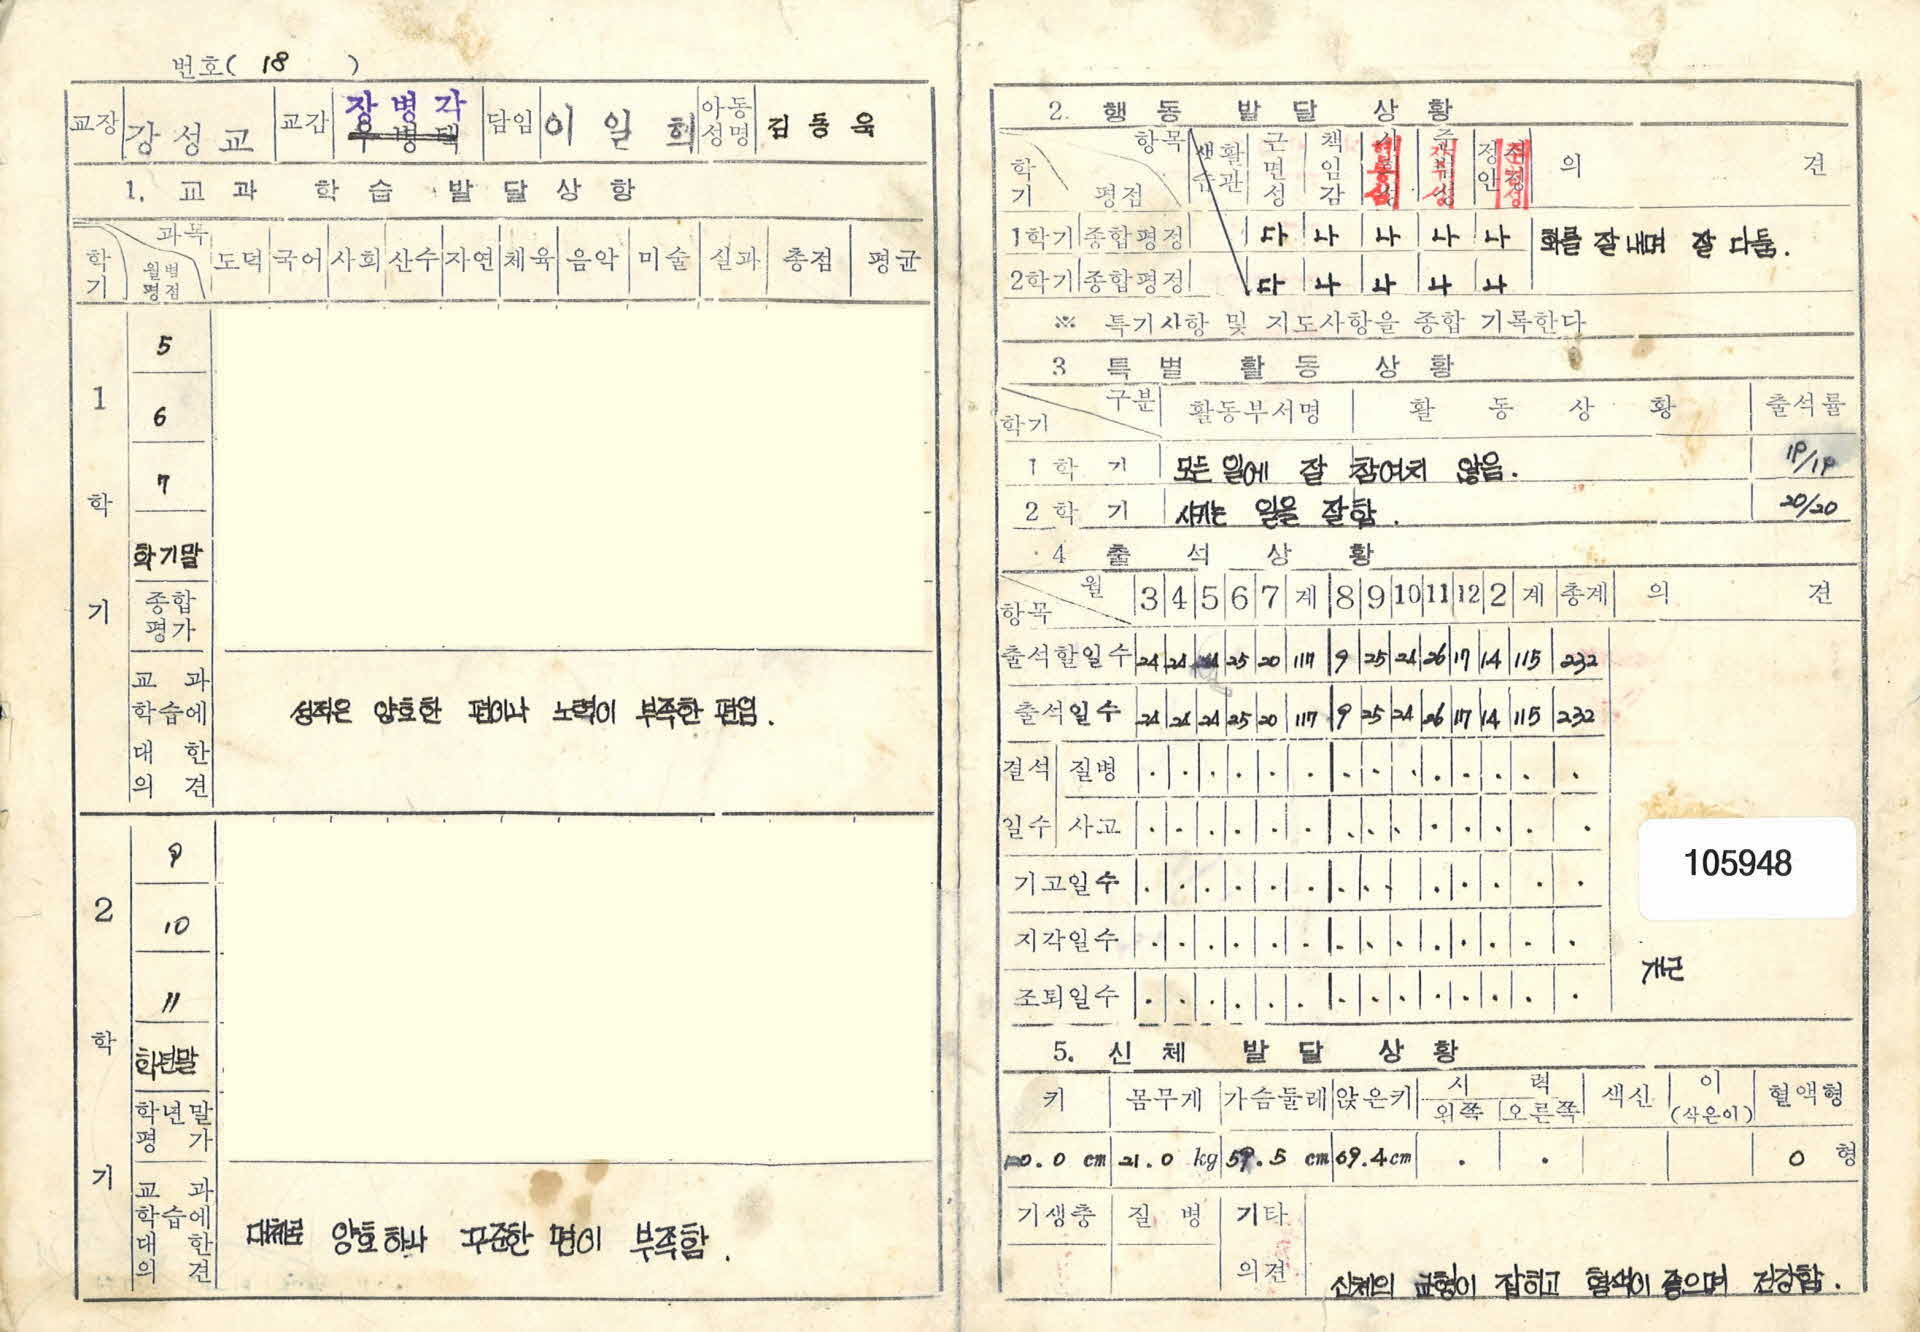 번호( 18 )
교장 강성교 교감 장병각 담임 이일희 아동성명 김동욱
1. 교과 학습 발달상항
학기 과목 월별평점 도덕 국어 사회 산수 자연 체육 음악 미술 실과 총점 평균
1학기
5
6
7
학기말
종합평가
교과학습에 대한 의견 성적은 양호한 편이나 노력이 부족한 편임.
2학기
9
10
11
학년말
학년말평가
교과학습에 대한 의견 대체로 양호하나 꾸준한 면이 부족함.
2. 행동발달상황
학기 항목 평점 생활습관 근면성 책임감 협동심 자주성 정안 준법성 의견
1학기 종합평정 다 나 나 나 나 화를 잘 내며 잘 다툼.
2학기 종합평정 다 나 나 나 나
※ 특기사항 및 지도사항을 종합 기록한다
3 특별활동상황
학기 구분 활동부서명 활동상황 출석률
1학기 모든 일에 잘 참여치 않음. 19/19
2학기 시키는 일을 잘함. 20/20
4 출석상황
항목 월 3 4 5 6 7 계 8 9 10 11 12 2 계 총계 의견
출석할일수 24 24 24 25 20 117 9 25 24 26 17 14 115 232
출석일수 24 24 24 25 20 117 9 25 24 26 17 14 115 232
결석일수 질병 . . . . . . . . . . . . . .
사고 . . . . . . . . . . . . . .
기고일수 . . . . . . . . . . . . . .
지각일수 . . . . . . . . . . . . . .
조퇴일수 . . . . . . . . . . . . . .
105948
개근
5. 신체발달상황
키 몸무게 가슴둘레 앉은키 시력 왼쪽 오른쪽 색신 이(삭은이) 혈액형
.0 cm 21.0 kg 59.5 cm 69.4cm . . O 형
기생충 질병 기타의견 신체의 균형이 잡히고 혈색이 좋으며 건강함.